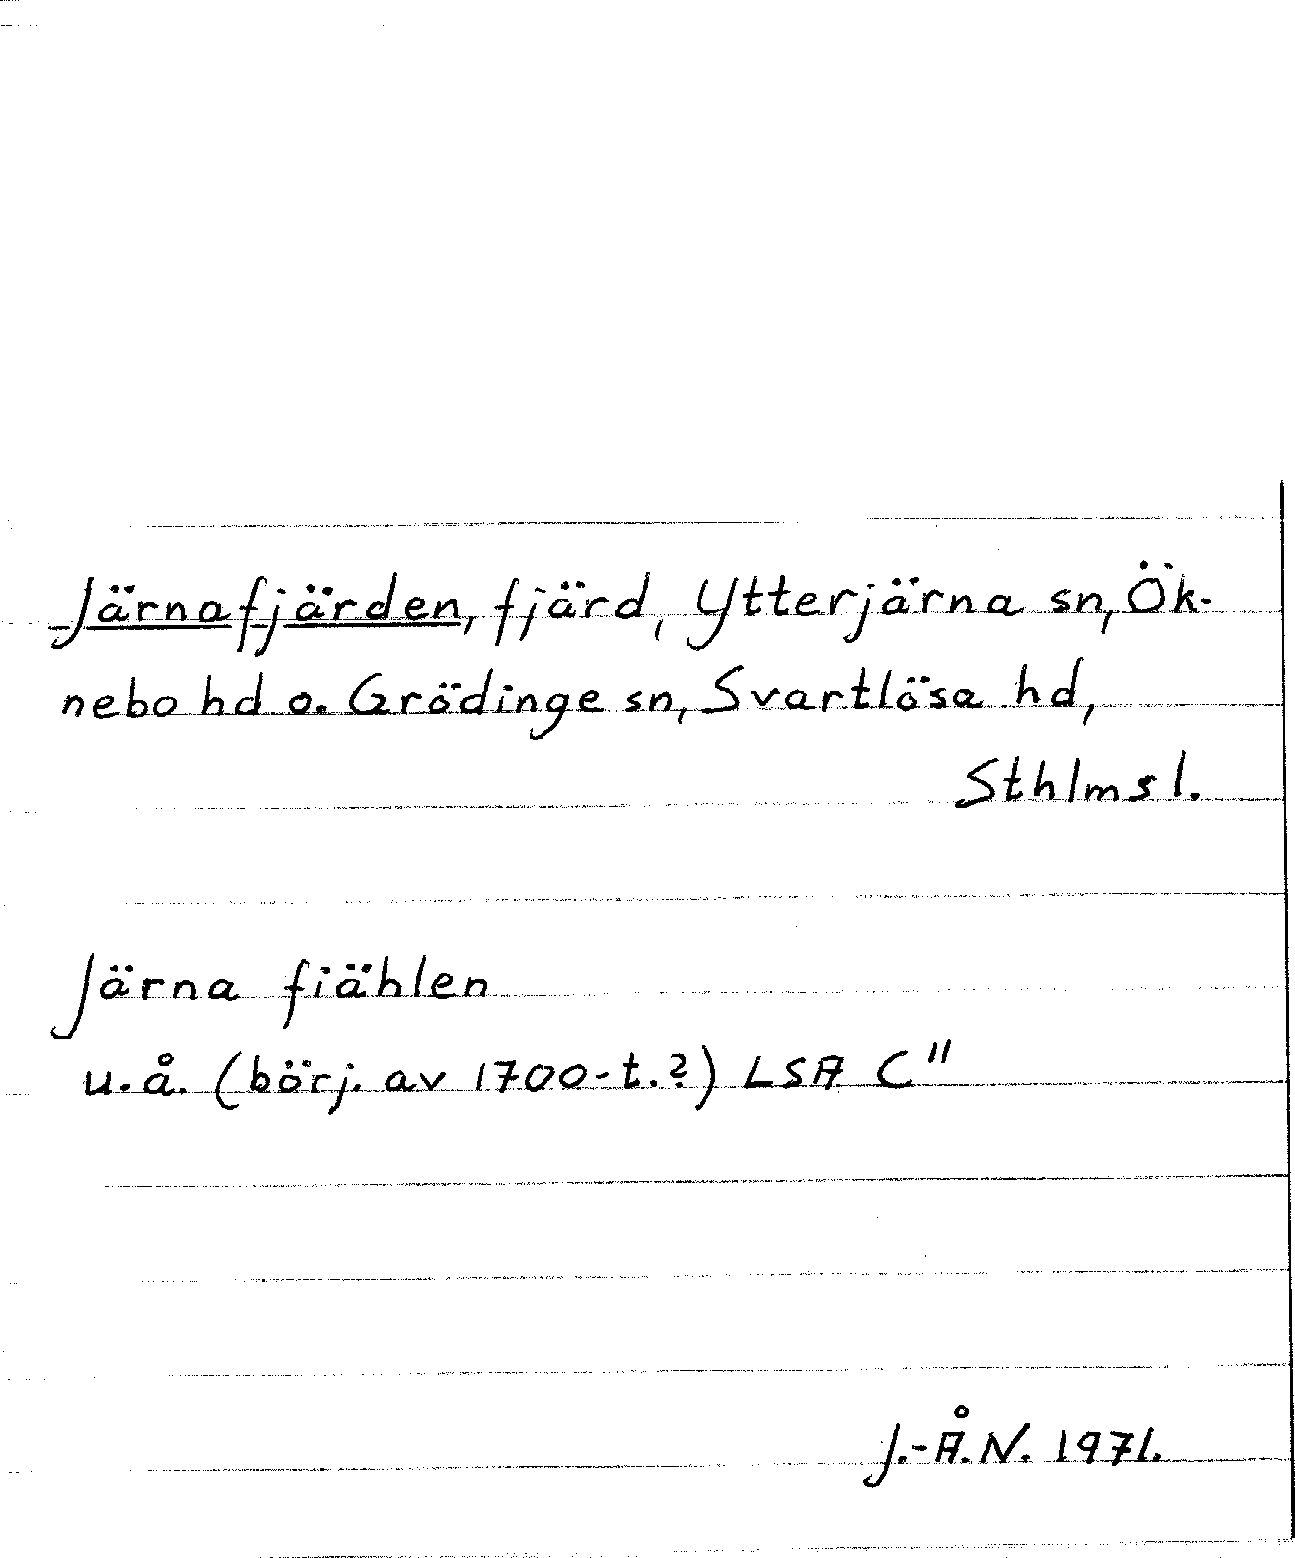 Järnafjärden, fjärd, Ytterjärna sn, Ök-
nebo hd o. Grödinge sn, Svartlösa hd,
Sthlms l.
Järna fiählen
u.å. (börj. av 1700-t.?) LSA C"
J.-Å.N. 1971.